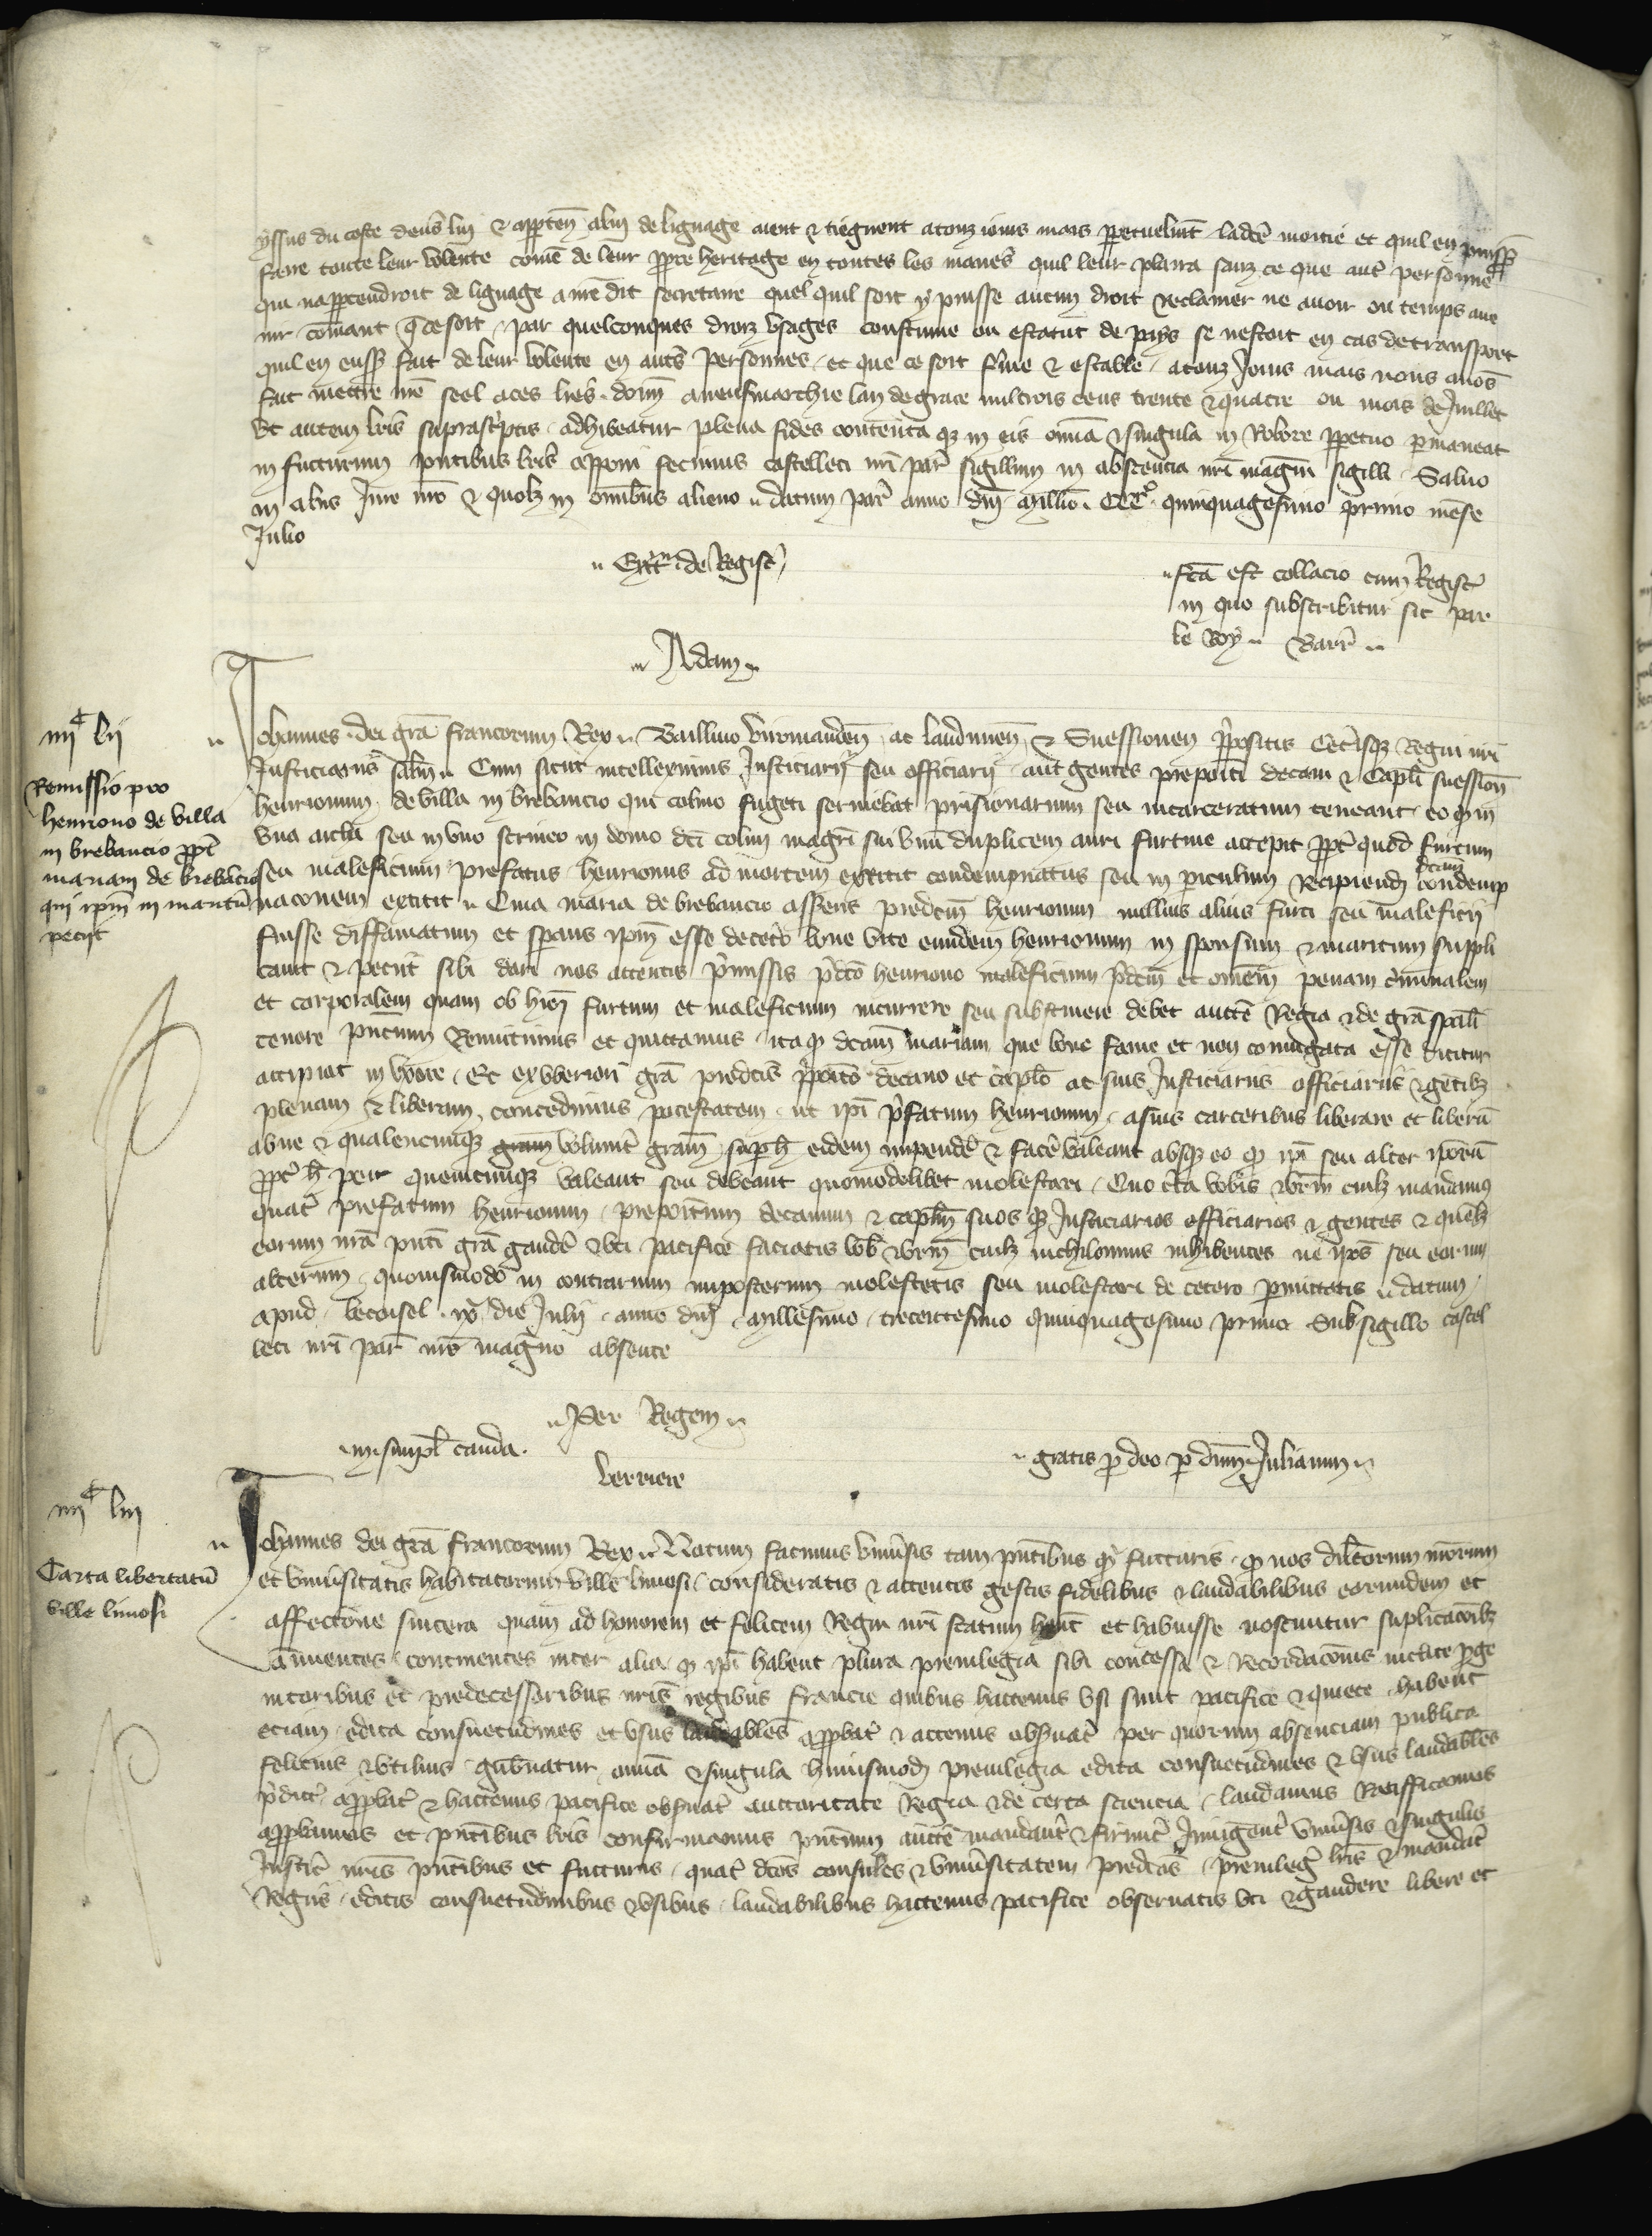 yssus du coste deuers lui & apptenˉ a lui de lignage aient & tiegnent a touz iours mais perpetuelmˉt ladce moitie et quil en puissˉ
faire toute leur volente comē de leur ppre heritage en toutes les manes quil leur plaira sanz ce que autˀ personne
qui napptendroit de lignage a nrē dit secretaire quel quil soit y puisse aucun droit reclamer ne auoir ou temps aue
nir cōmant q̄ ce soit par quelconques droiz vsages coustume ou estatut de pays se nestoit en cas de transport
quil en eussˉ fait de leur volente en autˀs personnes et que ce soit fˀme & estable a touz Jours mais nous auōs
fait mettre nrē seel a ces lrēs. donˉ a neufmarchie lan de grace mil trois cens trente & quatre ou mois de Juillet
Vt autem lrīs suprascˀptis adhibeatur plena fides contenta qz in eis omīa & singula in Robore ppetuo pmaneat
in futturum pntibus lrīs apponi fecimus castelleti nrī parˀ sigillum in absencia nrī magnī sigilli Saluo
in aliis Jure nrō & quolz in omībus alieno datum parˀ anno dnī millīo. CCCº quinquagesimo primo mense
Julio
Extˀm de Registˀ
fcā est collacio cum Registˀ
in quo subscribitur sic par
le Roy. Barrˀ
Adam
iiijᶜ lij
Remissio pro
henriono de villa
in brebancio pptˀ
mariam de brebancio
qui ipm in maritū
petijt
Johannes dei grā francorum Rex Baillivo viromandenˉ ac laudunenˉ & Suessionenˉ ppositis Cetˀisqz Regni nrī
Justiciariis saltˉm Cum sicut intelleximus Justiciarij seu officiarij aut gentes prepoiti decani & Capli suessionˉ
henrionum de villa in brebancio qui colino fugeti seruiebat prisionarium seu incarceratum teneant eo qz in
vna archa seu in vno scrineo in domo dcī colini magrī sui vnū duplicem auri furtiue accepit pptˀ quod furtum
seu maleficium prefatus henrionus ad mortem extitit condempnatus seu in piculum recipiendi dcam condemp
nacionem extitit Cuia maria de brebancio asserˉns predcm henrionum nullius alius furti seu maleficij
fuisse diffamatum et sperans ipm esse decetˀo bone vite eundem henrionum in sponsum & maritum suppli
cauit & petiit sibi dari nos attentis pmissis pdcō henriono maleficium pdcm et omēm penam cˀminalem
et corporalem quam ob hoc furtum et maleficium incurrere seu substinere debet auctē Regia & de grā spali
tenore pntium Remittimus et quittamus ita qz dcam mariam que bone fame et non coniugata esse dicitur
accipiat in vxore Et ex vberiori grā predcis ppoitō decano et caplo ac suis Justiciariis officiariis & gētibz
plenam & liberam concedimus potestatem ut ipi pfatum henrionum a suis carceribus liberare et liberū
abire & qualencunqz gram volunt̄ gram suph eidem impendeˀ & faceˀ valeant absqz eo qz ipi seu alter ipōrū
pptˀ h̄ per quemcunqz valeant seu debeant quomodolibet molestari Quo cˀca vobis & vrm̄ cuilz mandamus
quatˀ prefatum henrionum prepoitum decanum & caplm̄ suos qz Justiciarios officiarios & gentes & quēlz
eorum nrā pntī grā gaudeˀ & vti pacifice faciatis vobˀ & vrm̄ cuilz nichilominus inhibentes ne ipos seu eorum
alterum quouismodō in contrarium imposterum molestetis seu molestari de cetero pmittatis datum
apud becoisel xº die Julij anno dnī millesimo trecentesimo quinquagesimo primo Sub sigillo castel
leti nrī parˀ nrō magno absente
Per Regem
in simplˀ cauda
berriere
gratis p deo p dnm Julianum
iiijᶜ liij
Carta libertatū
ville limosi
Johannes dei grā francorum Rex Notum facimus vniūsis tam pntibus qz futturis qz nos dilcorum nrorum
et vniūsitatis habitatorum ville limosi consideratis & attentis gestis fidelibus & laudabilibus eorundem et
affectione sincera quam ad honorem et felicem Regni nrī statum hˉnt et habuisse noscuntur suplicacionibz
annuentes continentes inter alia qz ipi habent plura preuilegia sibi concessa & Recordacionis inclite pge
nitoribus et predecessoribus nris regibus francie quibus hactenus vsi sunt pacifice & quiete habent
etiam edita consuetudines et vsus laudabiles appbatˀ & actenus obseruatˀ per quorum absenciam publica
felicius & vtilius gubˀnatur omīa & singula huiusmodi preuilegia edita consuetudines & vsus laudabiles
pdictˀ appbatˀ & hactenus pacifice obseruatˀ auctoritate Regia & de certa sciencia laudamus Ratifficamus
appbamus et pntibus lrīs confirmamus pntium auctē mandantˀ & firmitˀ Jniungentˀ vniūsis & singulis
Justicˀ nris pntibus et futturis quatˀ dcos consules & vniūsitatem predcos preuilegˀ lrīs & mandatˀ
Regiis editis consuetudinibus & vsibus laudabilibus hactenus pacifice obseruatis vti & gaudere libere et